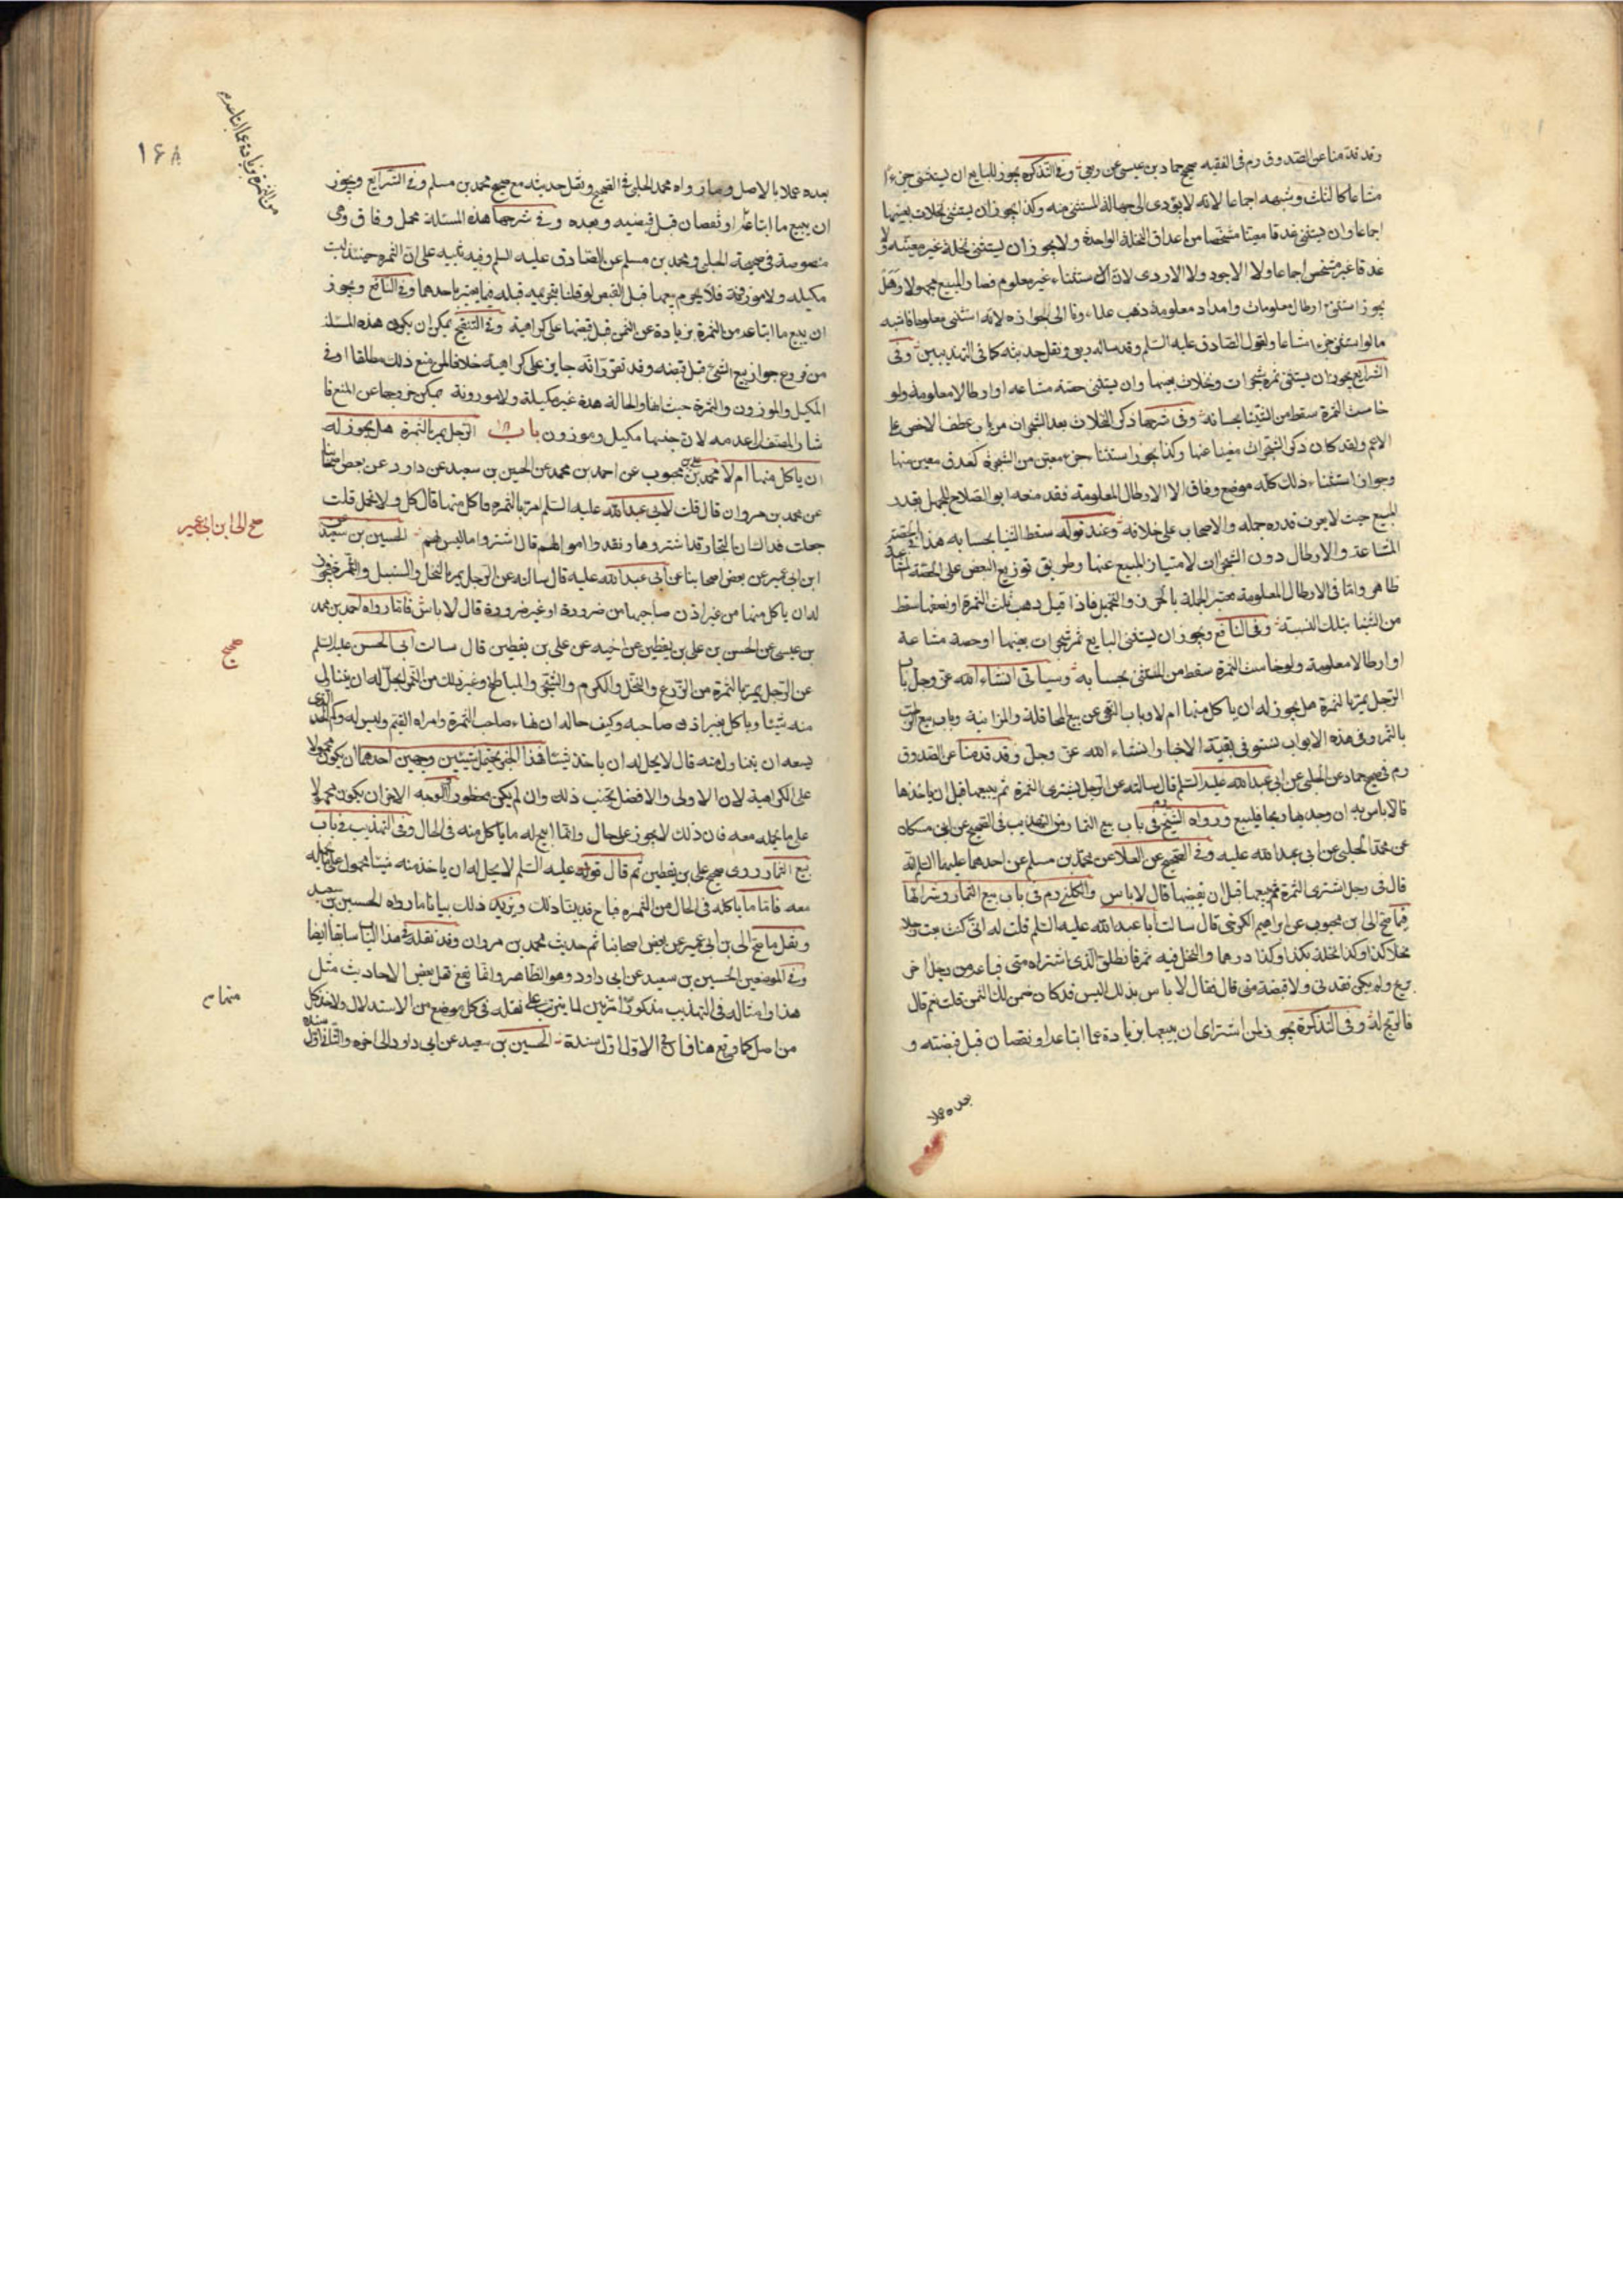 وقد قدمنا عن الصدوق رم فى الفقيه صحيح حماد بن عيسى عن ربعى وفى التذكرة يجوز للبايع ان يستثنى جزءا
مشاعا كالثلث وشبهه اجماعا لانه لا يؤدى الى جهالة المستثنى منه وكذا يجوز ان يستثنى نخلات بعينها
اجماعا وان يستثنى عذقا معينا مشخصا من اعذاق النخلة الواحدة ولا يجوز ان يستثنى نخلة غير معينة ولا
عذقا غير مشخص اجماعا ولا الاجود ولا الاردى لان الاستثناء غير معلوم فصار المبيع مجهولا وهل
يجوز استثناء ارطال معلومات وامداد معلومة ذهب علماءونا الى جوازه لانه استثنى معلوما فاشبه
ما لو استثنى جزءا مشاعا ولقول الصادق عليه السلم وقد ساله ربعى ونقل حديثه كما فى التهذيبين وفى
الشرايع يجوز ان يستثنى ثمرة شجرات ونخلات بعينها وان يستثنى حصة مشاعه او ارطالا معلومة ولو
خاست الثمرة سقط من الثنيا بحسابه وفى شرحها ذكر النخلات بعد الشجرات من باب عطف الاخص على
الاعم ولقد كان ذكر الشجرات مغنيا عنها وكذا يجوز استثناء جزء معين من الشجرة كعذق معين منها
وجواز استثناء ذلك كله موضع وفاق الا الارطال المعلومة فقد منعه ابو الصلاح للجهل بقدر
المبيع حيث لا يعرف قدره جمله والاصحاب على خلافه وعند قوله سقط الثنيا بحسابه هذا فى الحصة
المشاعة والارطال دون الشجرات لامتياز المبيع عنها وطريق توزيع النقص على الحصة المشاعة
ظاهر واما فى الارطال المعلومة معتبر الجملة بالخرز والتخمين فاذا قيل ذهب ثلث الثمرة او نصفها سقط
من الثنيا بتلك النسبة وفى النافع ويجوز ان يستثنى البايع ثمر شجرات بعينها او حصة مشاعة
او ارطالا معلومة ولو خاست الثمرة سقط من المستثنى بحسابه وسياتى انشاء الله عز وجل باب
الرجل يمر بالثمرة هل يجوز له ان ياكل منها ام لا وباب النهى عن بيع المحاقلة والمزابنة وباب بيع الرطب
بالتمر وفى هذه الابواب نستوفى بقية الاخبار انشاء الله عز وجل وقد قدمنا عن الصدوق
رم فى صحيح حماد عن الحلبى عن ابى عبد الله عليه السلم قال سالته عن الرجل يشترى الثمرة ثم يبيعها قبل ان ياخذها
قال لا باس به ان وجد بها ربحا فليبع ورواه الشيخ رم فى باب بيع الثمار من التهذيب فى الصحيح عن ابن مسكان
عن محمد الحلبى عن ابى عبد الله عليه وفى الصحيح عن العلا عن محمد بن مسلم عن احدهما عليهما السلم انه
قال فى رجل اشترى الثمرة ثم يبيعها قبل ان يقبضها قال لا باس والكلينى رم فى باب بيع الثمار وشرائها
فيما صح الى ابن محبوب عن ابراهيم الكرخى قال سالت ابا عبد الله عليه السلم قلت له انى كنت بعت رجلا
نخلا كذا وكذا نخلة بكذا وكذا درهما والنخل فيه ثمر فانطلق الذى اشتراه منى فباعه من رجل اخر
بربح ولم يكن نقدنى ولا قبضه منى قال فقال لا باس بذلك اليس قد كان ضمن لك الثمن قلت نعم قال
فالربح له وفى التذكرة يجوز لمن اشترى ان يبيعها بزيادة عما ابتاعه او نقصان قبل قبضه و
بعده عملا
من الثمرة بزيادة عما ابتاعه م
١٦٨
بعده عملا بالاصل وما رواه محمد الحلبى فى الصحيح ونقل حديثه مع صحيح محمد بن مسلم وفى الشرايع ويجوز
ان يبيع ما ابتاعه بزيادة او نقصان قبل قبضه وبعده وفى شرحها هذه المسئلة محل وفاق وهى
منصوصة فى صحيحة الحلبى ومحمد بن مسلم عن الصادق عليه السلم وفيه تنبيه على ان الثمرة حينئذ ليست
مكيله ولا موزونة فلا يحرم بيعها قبل القبض لو قلنا بتحريمه قبله فيما يعتبر باحدهما وفى النافع ويجوز
ان يبيع ما ابتاعه من الثمرة بزيادة عن الثمن قبل قبضها على كراهية وفى التنقيح يمكن ان يكون هذه المسئلة
من فروع جواز بيع الشئ قبل قبضه وقد تقرر انه جايز على كراهية خلافا لمن منع ذلك مطلقا او فى
المكيل والموزون والثمرة حيث انها والحالة هذه غير مكيلة ولا موزونة يمكن خروجها عن المنع فا
شار المصنف الى عدمه لان جنسها مكيل وموزون باب الرجل يمر بالثمرة هل يجوز له
ان ياكل منها ام لا محمد بن على بن محبوب عن احمد بن محمد عن الحسين بن سعيد عن داود عن بعض اصحابنا
عن محمد بن مروان قال قلت لابى عبد الله عليه السلم امر بالثمرة فاكل منها قال كل ولا تحمل قلت
جعلت فداك ان التجار قد اشتروها ونقدوا اموالهم قال اشتروا ما ليس لهم الحسين بن سعيد عن
ابن ابى عمير عن بعض اصحابنا عن ابى عبد الله عليه قال سالته عن الرجل يمر بالنخل والسنبل والثمر فيجوز
له ان ياكل منها من غير اذن صاحبها من ضرورة او غير ضرورة قال لا باس فاما رواه احمد بن محمد
بن عيسى عن الحسن بن على بن يقطين عن اخيه عن على بن يقطين قال سالت ابا الحسن عليه السلم
عن الرجل يمر بالثمرة من الزرع والنخل والكرم والشجر والمباطخ وغير ذلك من الثمر ايحل له ان يتناول
منه شيئا وياكل بغير اذن صاحبه وكيف حاله ان نهاه صاحب الثمرة او امره القيم وليس له وكم الحد الذى
يسعه ان يتناول منه قال لا يحل له ان ياخذ شيئا فهذا الخبر يحتمل شيئين وجهين احدهما ان يكون محمولا
على الكراهية لان الاولى والافضل تجنب ذلك وان لم يكن محظورا والوجه الاخر ان يكون محمولا
على ما يحمله معه فان ذلك لا يجوز على حال وانما ابيح له ما ياكل منه فى الحال وفى التهذيب فى باب
بيع الثمار روى صحيح على بن يقطين ثم قال قوله عليه السلم لا يحل له ان ياخذ منه شيئا محمول على ما يحمله
معه فاما ما ياكله فى الحال من الثمره فباح قد بينا ذلك ويزيد ذلك بيانا ما رواه الحسين بن سعيد
ونقل ما صح الى بن ابى عمير عن بعض اصحابنا ثم حديث محمد بن مروان وقد نقله فى هذا الباب سابقا ايضا
وفى الموضعين الحسين بن سعيد عن ابى داود وهو الظاهر وانما يقع نقل بعض الاحاديث مثل
هذا وامثاله فى التهذيب مذكورا مرتين لما يترتب على نقله فى كل موضع من الاستدلال ولاخذ كل
من اصل كما وقع هنا فان فى الاول اول سنده الحسين بن سعيد عن ابى داود الى اخره والثانى اول سنده
صح الى ابن ابى عمير
صحيح
منهما م